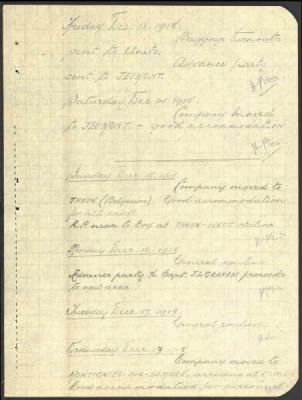 Friday Dec. 13. 1918.
Baggage turnouts
sent to Units.
Advance party
sent to JEUMONT.
Saturday Dec 14 1918.
Company moved
to JEUMONT. — good accommodation
Sunday Dec. 15. 1918
Company moved to
THUIN (Belgium). Good accommodation
for all ranks.
R.P. near to Coy at THUIN-WEST station
Monday Dec. 16. 1918
General routine
Advance party & Capt. J.L. GRAHAM proceeds
to new area
Tuesday Dec. 17. 1918
General routine
Wednesday Dec. 1918
Company moved to
MONTIGNIES-SUR-SAMBRE, arriving at
Good accommodation for personnel